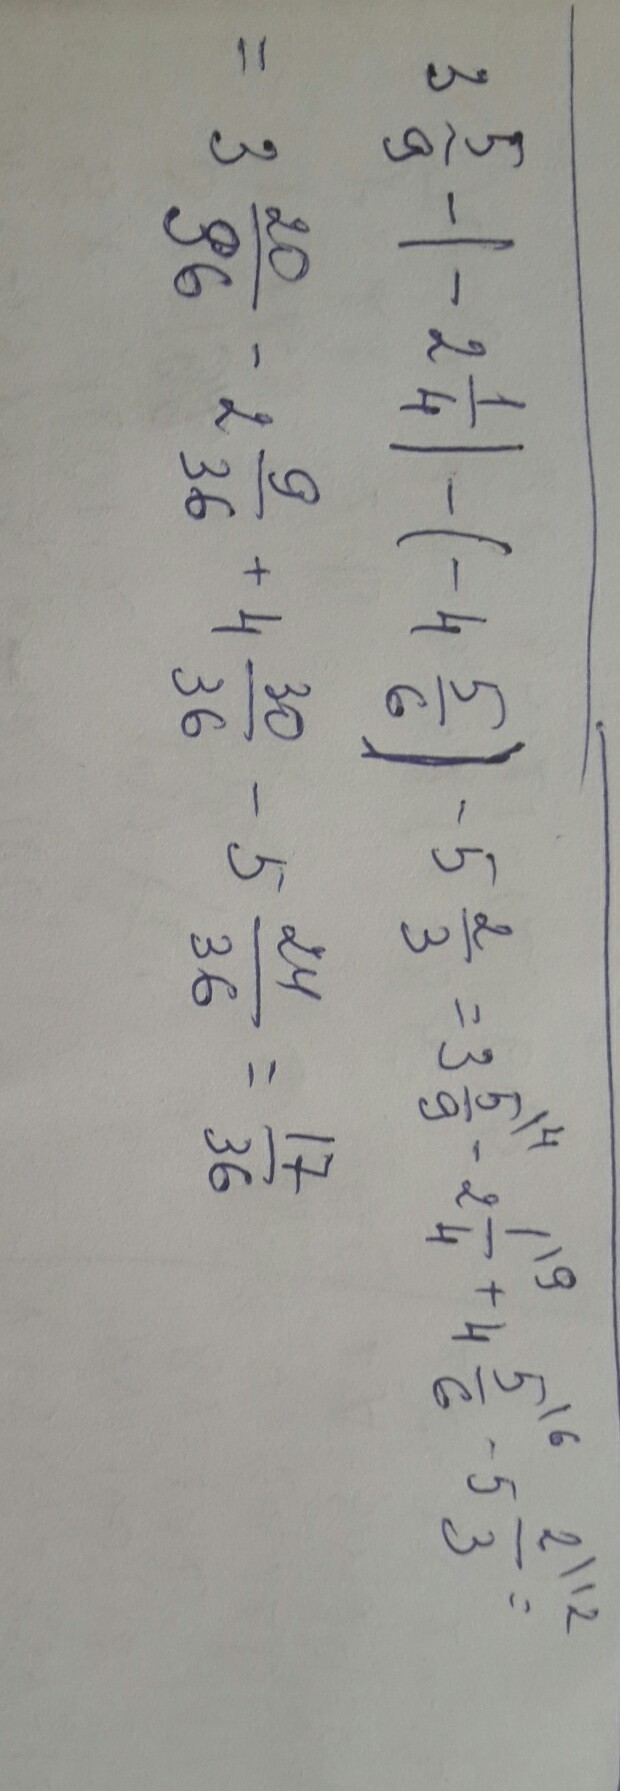 3 5/9 - |-2 1/4| - (-4 5/6) - 5 2/3 = 3 5\4/9 - 2 1\9/4 + 4 5\6/6 - 5 2\12/3 =
= 3 20/36 - 2 9/36 + 4 30/36 - 5 24/36 = 17/36